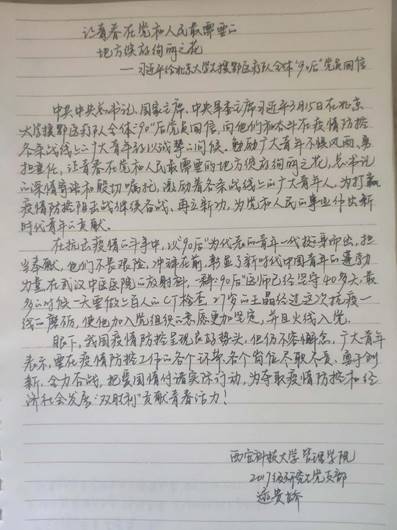 让青春在党和人民最需要的
地方绽放绚丽之花
——习近平给北京大学援鄂医疗队全体“90后”党员回信
中共中央总书记、国家主席、中央军委主席习近平3月15日在北京
大学援鄂医疗队全体“90后”党员回信,向他们和奋斗在疫情防控
各条战线上的广大青年致以诚挚的问候。勉励广大青年不惧风雨、勇
担重任,让青春在党和人民最需要的地方绽放绚丽之花。总书记
的深情寄语和殷切嘱托,激励着各条战线上的广大青年人,为打赢
疫情防控阻击战继续奋战,再立新功,为党和人民的事业作出新
时代青年的贡献。
在抗击疫情的斗争中,以“90后”为代表的青年一代挺身而出,担
当奉献,他们不畏艰险,冲锋在前,彰显了新时代中国青年的蓬勃力
力量在武汉中医医院的放射科,一群“90后”医师已经坚守40多天,最
多的时候一天要做上百人的CT检查。27岁的王晶经过这次抗疫一
线的磨砺,使他加入党组织的意愿更加坚定,并且火线入党。
眼下,我国疫情防控呈现良好势头,但仍不容懈怠。广大青年
表示,要在疫情防控工作的各个环节各个岗位尽职尽责、勇于创
新、全力奋战,把爱国情付诸实际行动,为夺取疫情防控和经
济社会发展“双胜利”贡献青春活力!
西安科技大学管理学院
2019级研究生党支部